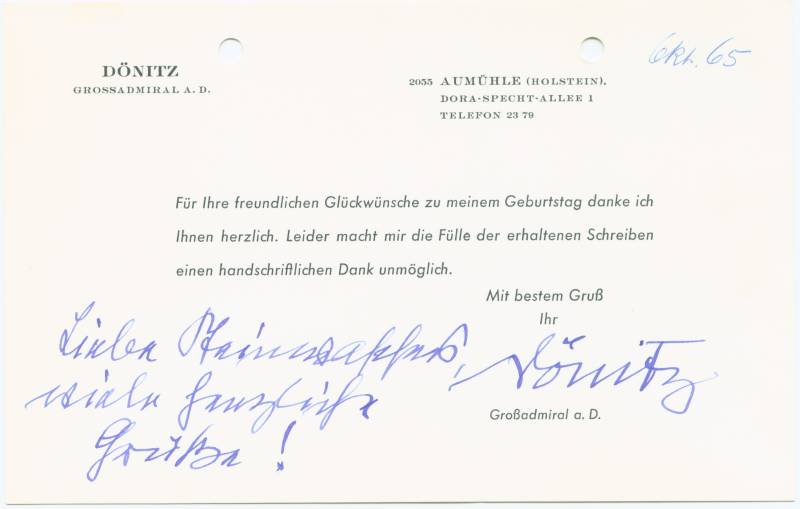 DÖNITZ
GROSSADMIRAL A. D.
2055 AUMÜHLE (HOLSTEIN),
DORA-SPECHT-ALLEE 1
TELEFON 23 79
Okt. 65
Für Ihre freundlichen Glückwünsche zu meinem Geburtstag danke ich
Ihnen herzlich. Leider macht mir die Fülle der erhaltenen Schreiben
einen handschriftlichen Dank unmöglich.
Mit bestem Gruß
Ihr
Liebe
viele herzliche
Grüße!
Dönitz
Großadmiral a. D.